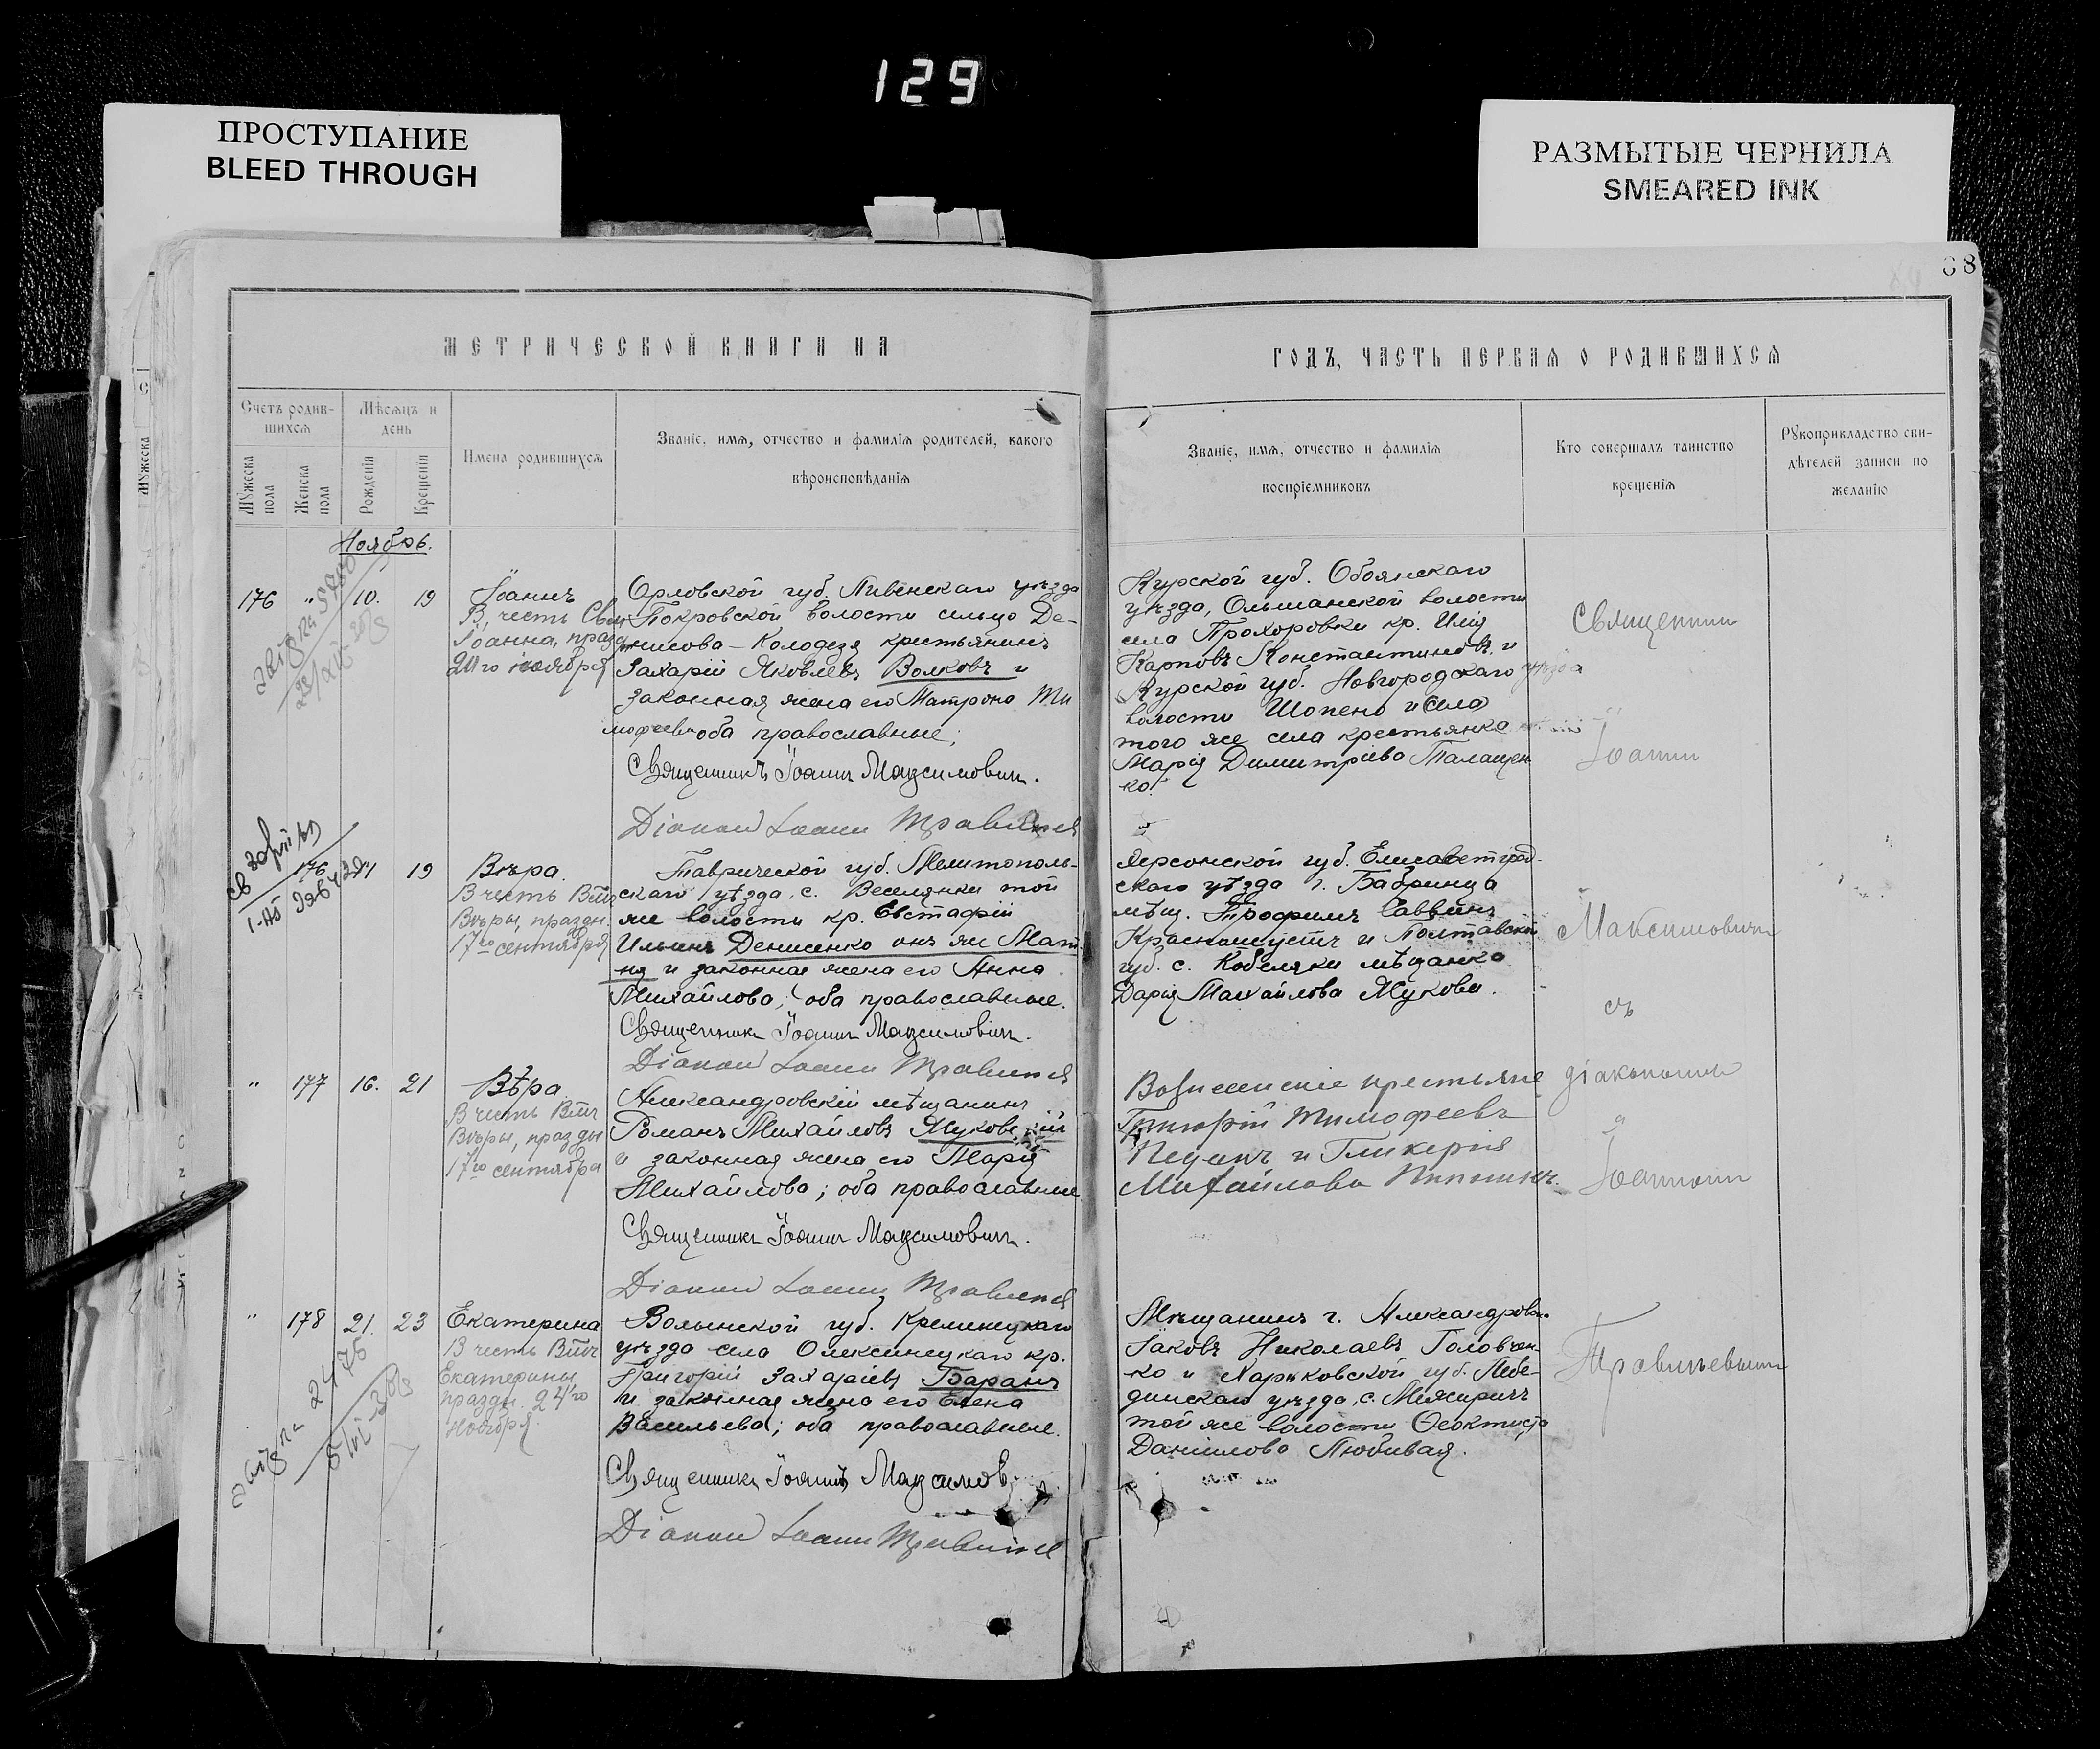 129
ПРОСТУПАНИЕ
BLEED THROUGH
РАЗМЫТЫЕ ЧЕРНИЛА
SMEARED INK
68
МЕТРИЧЕСКОЙ КНИГИ НА
ГОДЪ, ЧАСТЬ ПЕРВАЯ О РОДИВШИХСЯ
Счетъ родив-
шихся
Мѣсяцъ и
день
Мужеска
пола
Женска
пола
Рожденія
Крещенія
Имена родившихся
Званіе, имя, отчество и фамилія родителей, какого
вѣроисповѣданія
Званіе, имя, отчество и фамилія
воспріемниковъ
Кто совершалъ таинство
крещенія
Рукоприкладство сви-
дѣтелей записи по
желанію
Мужеска
Ноябрь.
176 " 10. 19
Іоаннъ
В честь Свят
Іоанна, празд
ноября
Орловской губ. Ливенскаго уѣзда
Покровской волости сельцо Де-
нисова-Колодезя крестьянинъ
Захарій Яковлевъ Волковъ и
законная жена его Матрона Ти
мофеева оба православные;
Священникъ Іоаннъ Максимовичъ.
Діаконъ Іоаннъ Травинскій
Курской губ. Обоянскаго
уѣзда, Ольшанской волости
села Прохоровки кр. Илія
Карповъ Константиновъ и
Курской губ. Новгородскаго уѣзда
волости Шопено и села
того же села крестьянка
Марія Димитріева Талащен
ко.
Священник
Іоанн
176 11 19
Вѣра.
В честь Вмч
Вѣры, праздн.
17го сентября
Таврической губ. Мелитополь-
скаго уѣзда, с. Веселянки той
же волости кр. Евстафій
Ильинъ Денисенко онъ же Мат
ня и законная жена его Анна
Михайлова; оба православные.
Священникъ Іоаннъ Максимовичъ.
Діаконъ Іоаннъ Травинскій
Херсонской губ. Елисаветград-
скаго уѣзда г. Бобринца
мѣщ. Трофимъ Саввинъ
и Полтавской
губ. с. Кобеляки мѣщанка
Дарія Михайлова Жукова.
Максимовичъ
съ
" 177 16. 21
Вѣра
В честь Вмч
Вѣры, праздн
17го сентября
Александровскій мѣщанинъ
Романъ Михайловъ
и законная жена его Марія
Михайлова; оба православные
Священникъ Іоаннъ Максимовичъ.
Діаконъ Іоаннъ Травинскій
Вознесенскіе крестьяне
Григорій Тимофеевъ
и Гликерія
Михайлова
діакономъ
Іоанномъ
" 178 21. 23
Екатерина
В честь Вмч
Екатерины
праздн. 24го
Ноября.
Волынской губ. Кременецкаго
уѣзда села Олексинецкаго кр.
Григорій Захаріевъ Баранъ
и законная жена его Елена
Васильева; оба православные.
Священникъ Іоаннъ Максимов
Діаконъ Іоаннъ Травинскій
Мѣщанинъ г. Александровска
Іаковъ Николаевъ Головчен-
ко и Харьковской губ. Лебе-
динскаго уѣзда, с. Межиричъ
той же волости Ѳеоктиста
Даниилова Любивая.